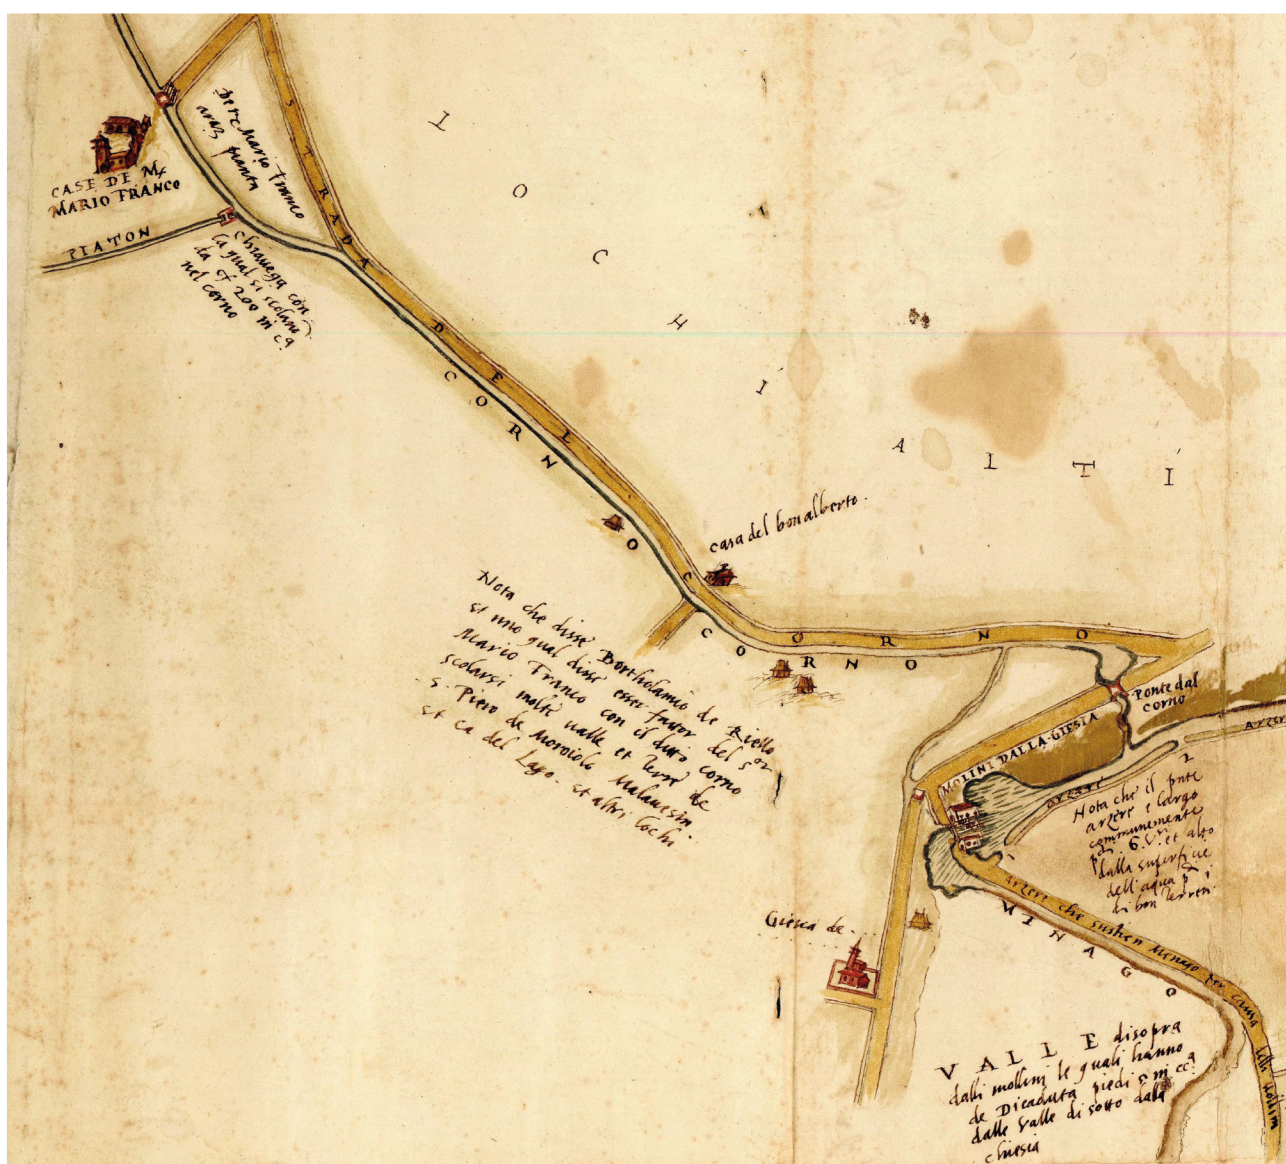 CASE DE Mr
MARIO FRANCO
De Mr Mario Franco
pianta
PIATON
Chiavega con
la qual si scolano
da 200 in
nel corno
STRADA DEL CORNO
CORNO
CORNO
LOCHI ALTI
casa del bonalberto.
Nota che disse Bortholamio de Riello
et uno qual disse esser fator del Sor
Mario Franco con il ditto corno
scolarsi molte valle et terre de
S. Piero de Moroiolo Malavesin.
et ca del Lago. et altri lochi
Ponte dal
corno
MOLINI DALLA GIESIA
arzere
Arzer
Nota che il pnte
arzere e largo
communemente
6. et alto
dalla superficie
dell aqua p i
di bon terren.
Arzere che sustien Menago per causa delli mollini
MINAGO
Giesia de
VALLE disopra
dalli mollinj le quali hanno
de Dicaduta piedi
dalle Valle di sotto dalla
chiesia